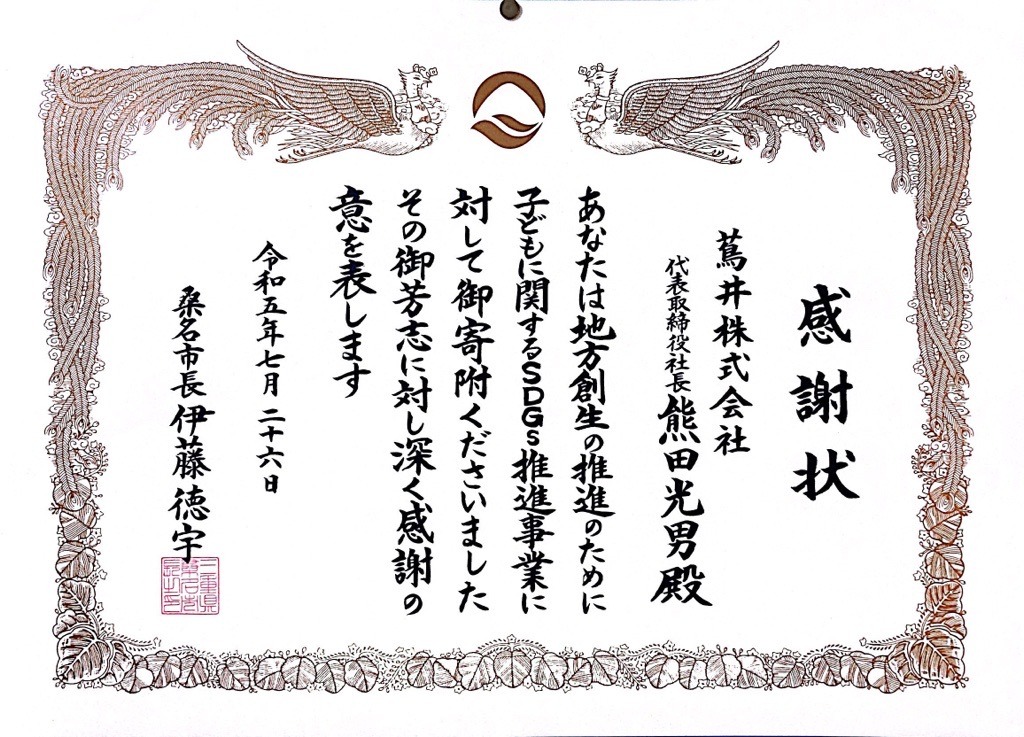 感謝状
蔦井株式会社
代表取締役社長 熊田光男殿
あなたは地方創生の推進のために
子どもに関するSDGs推進事業に
対して御寄附くださいました
その御芳志に対し深く感謝の
意を表します
令和五年七月二十六日
桑名市長 伊藤徳宇
三重県
桑名市
長之印